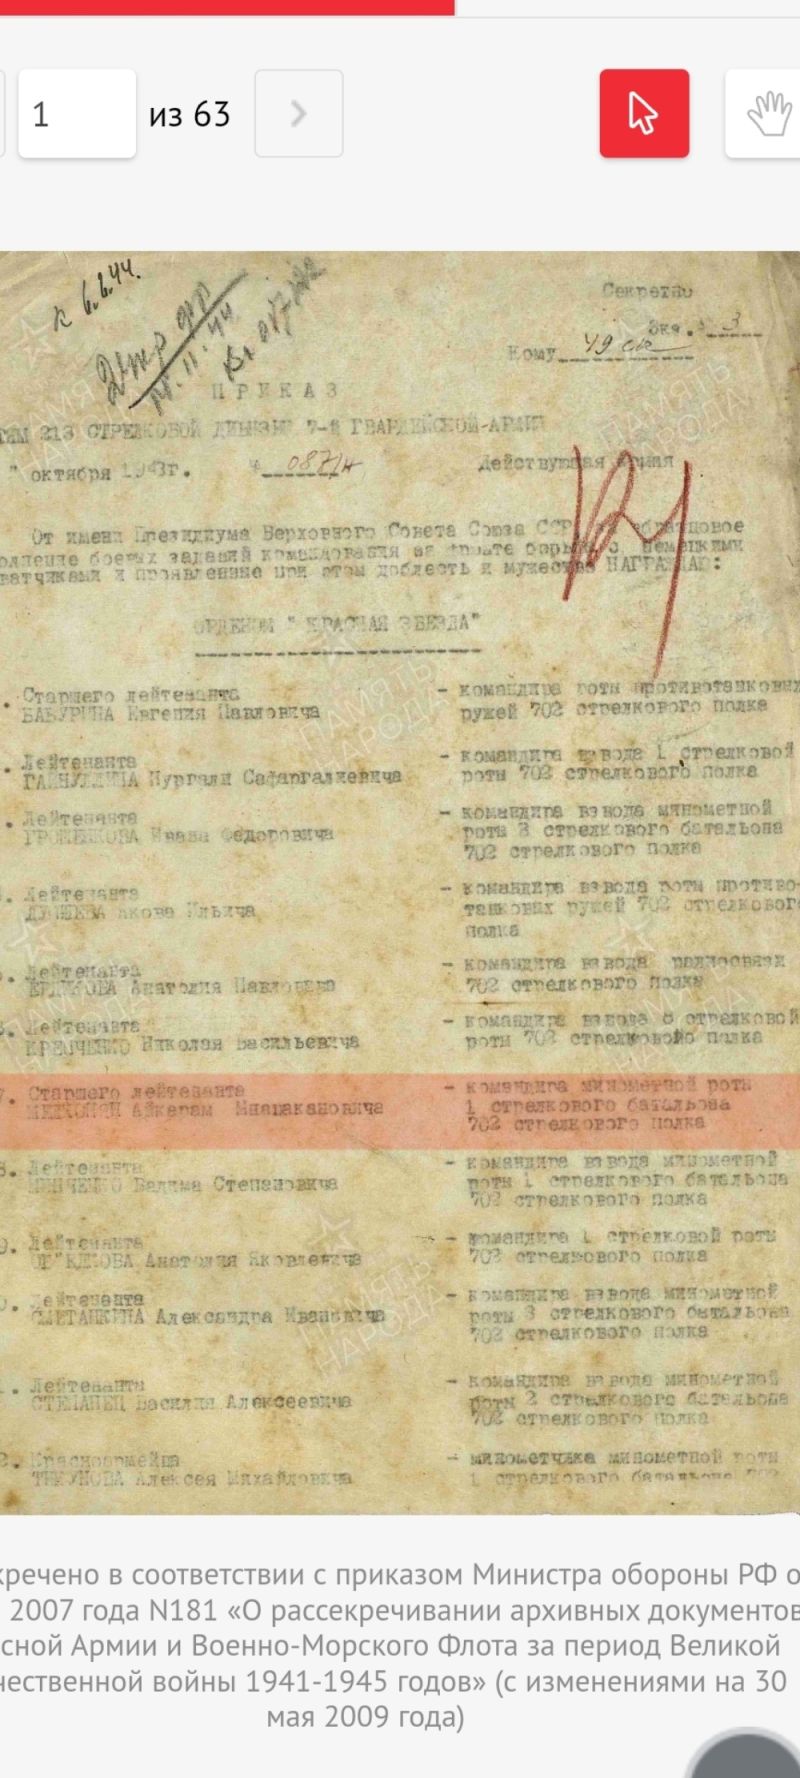 1 из 63
к 6.6.44.
Секретно
Экз. 3
Кому 49 ск
ПРИКАЗ
213 СТРЕЛКОВОЙ 7-й ГВАРДЕЙСКОЙ АРМИИ
" октября 1943г. 087/н Действующая армия
От имени Президиума Верховного Совета Союза ССР за образцовое
боевых заданий командования на фронте борьбы с немецкими
и проявленные при этом доблесть и мужество НАГРАЖДАЮ:
ОРДЕНОМ "КРАСНАЯ ЗВЕЗДА"
Старшего лейтенанта - командира роты противотанковых
БАБУРИНА Евгения Павловича ружей 702 стрелкового полка
Лейтенанта - командира взвода 1 стрелковой
Нургали Сафаргалиевича роты 702 стрелкового полка
Лейтенанта - командира взвода минометной
Ивана Федоровича роты 3 стрелкового батальона
702 стрелкового полка
Лейтенанта - командира взвода роты противо-
Якова Ильича танковых ружей 702 стрелкового
полка
Лейтенанта - командира взвода радиосвязи
Анатолия Павловича 702 стрелкового полка
Лейтенанта - командира взвода 8 стрелковой
КРАВЧЕНКО Николая Васильевича роты 702 стрелкового полка
7. Старшего лейтенанта - командира минометной роты
Айкарам Мнацакановича 1 стрелкового батальона
702 стрелкового полка
8. Лейтенанта - командира взвода минометной
Вадима Степановича роты 1 стрелкового батальона
702 стрелкового полка
9. Лейтенанта - командира 1 стрелковой роты
Анатолия Яковлевича 702 стрелкового полка
Лейтенанта - командира взвода минометной
СМЕТАНКИНА Александра Ивановича роты 3 стрелкового батальона
702 стрелкового полка
Лейтенанта - командира взвода минометной
Василия Алексеевича роты 2 стрелкового батальона
702 стрелкового полка
Красноармейца - минометчика минометной роты
Алексея Михайловича 1 стрелкового батальона 702
кречено в соответствии с приказом Министра обороны РФ о
2007 года N181 «О рассекречивании архивных документов
сной Армии и Военно-Морского Флота за период Великой
чественной войны 1941-1945 годов» (с изменениями на 30
мая 2009 года)